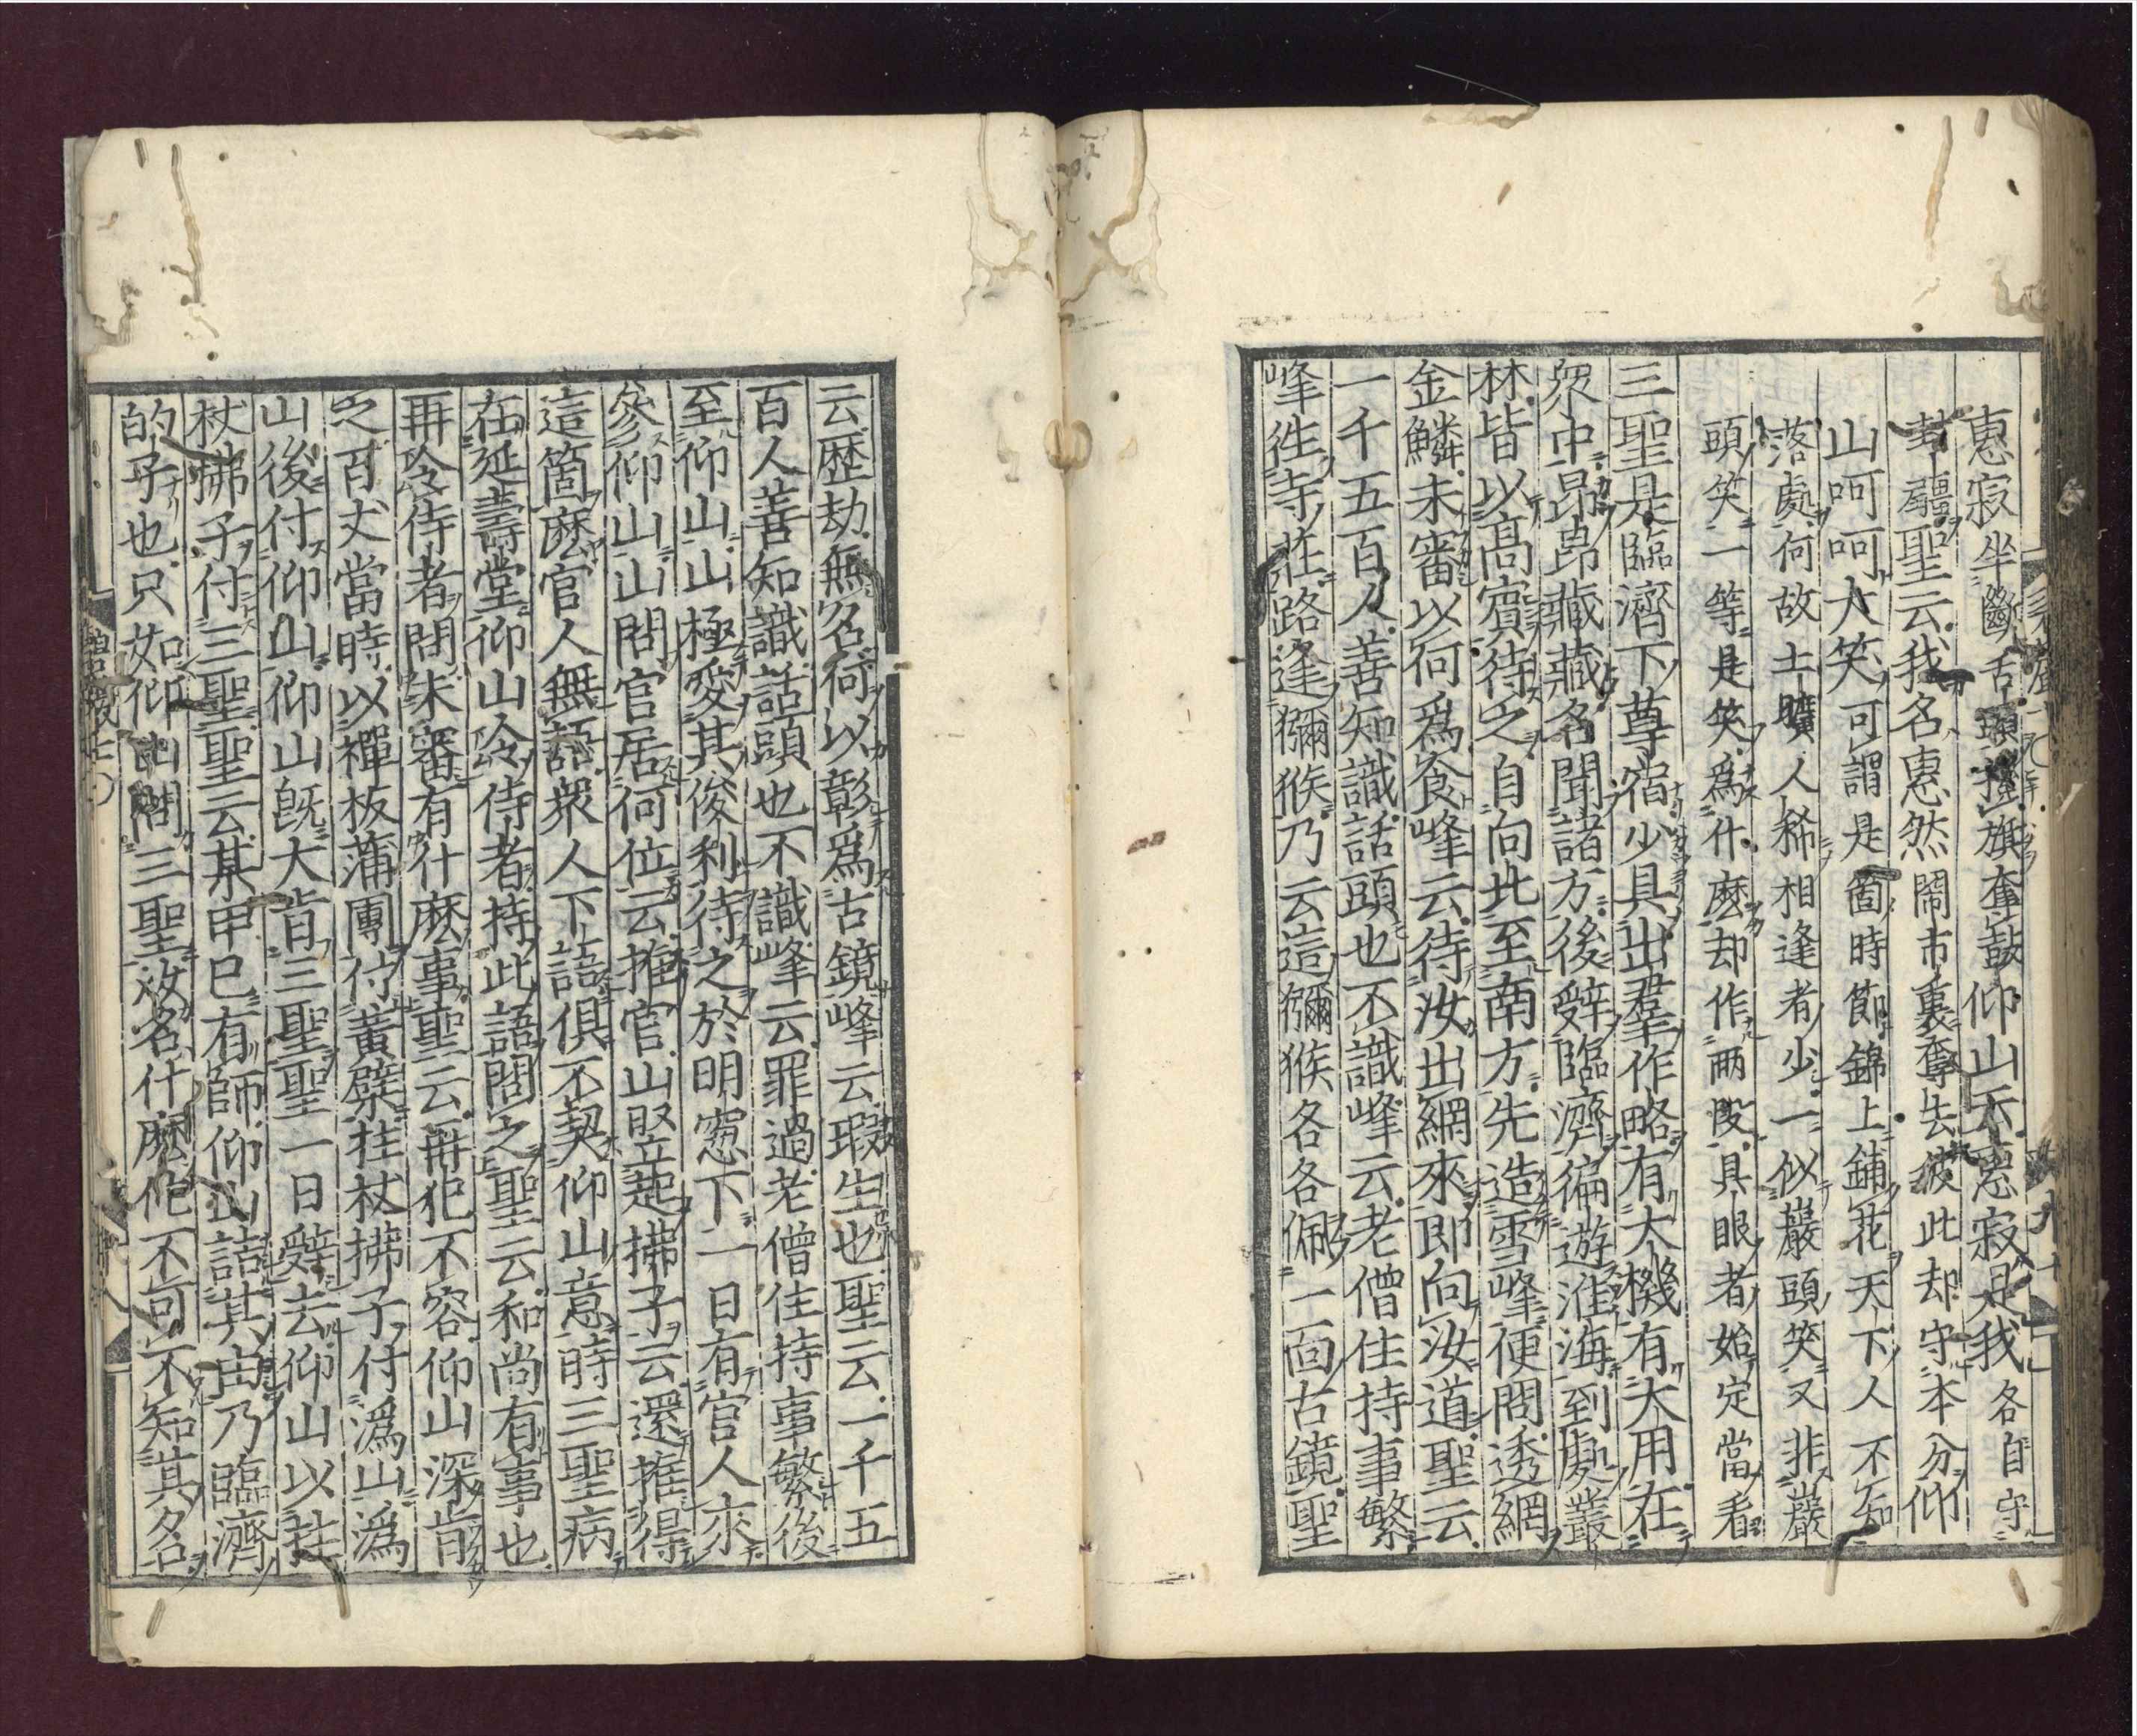 惠寂坐斷舌頭攙旗奪鼓仰山云惠寂是我各自守
封疆聖云我名惠然鬧市裏奪去彼此却守本分仰
山呵呵大笑可謂是箇時節錦上鋪花天下人不知
落處何故土曠人稀相逢者少一似巖頭笑又非巖
頭笑一等是笑爲什麽却作兩段具眼者始定當看
三聖是臨濟下尊宿少具出羣作略有大機有大用在
衆中昂昂藏藏名聞諸方後辝臨濟徧遊淮海到處叢
林皆以高賓待之自向北至南方先造雪峰便問透網
金鱗未審以何爲食峰云待汝出網來即向汝道聖云
一千五百人善知識話頭也不識峰云老僧住持事繁
峰徃寺莊路逢獼猴乃云這獼猴各各佩一面古鏡聖
云歷劫無名何以彰爲古鏡峰云瑕生也聖云一千五
百人善知識話頭也不識峰云罪過老僧住持事繁後
至仰山山極愛其俊利待之於明窓下一日有官人來
參仰山山問官居何位云推官山竪起拂子云還推得
這箇麽官人無語衆人下語俱不契仰山意時三聖病
在延壽堂仰山令侍者持此語問之聖云和尚有事也
再令侍者問未審有什麽事聖云再犯不容仰山深肯
之百丈當時以禪板蒲團付黃檗拄杖拂子付潙山潙
山後付仰山仰山既大肯三聖聖一日辝去仰山以拄
杖拂子付三聖聖云某甲已有師仰山詰其由乃臨濟
的子也只如仰山問三聖汝名什麽他不可不知其名